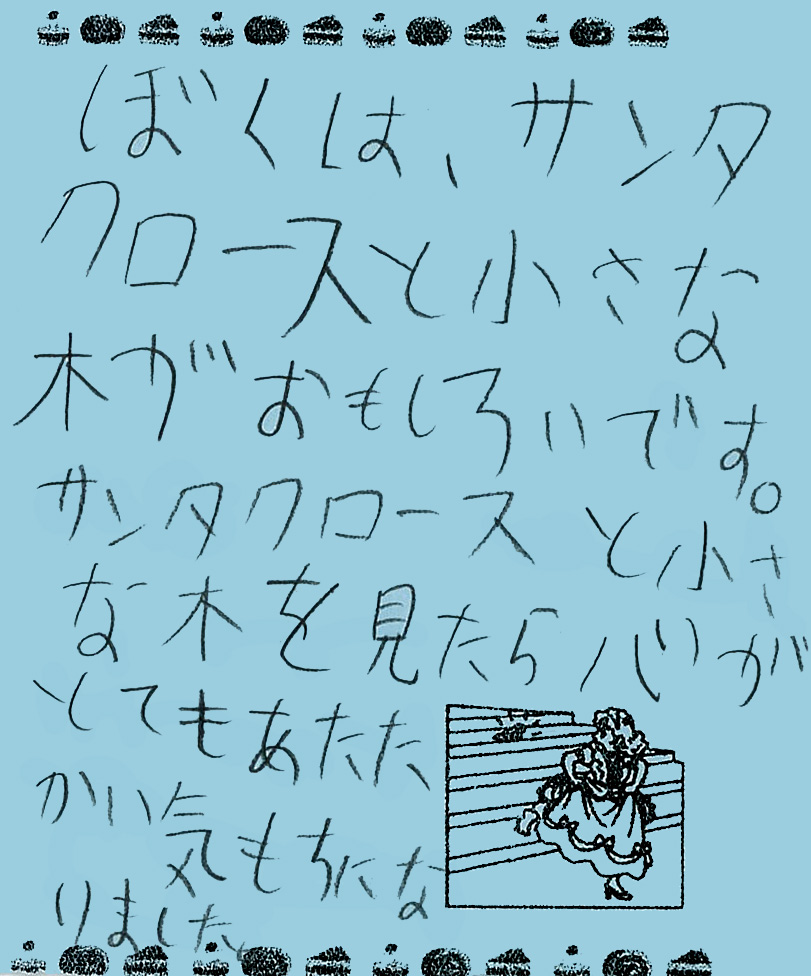 ぼくは、サンタ
クロースと小さな
木がおもしろいです。
サンタクロースと小さ
な木を見たら心が
とてもあたた
かい気もちにな
りました。